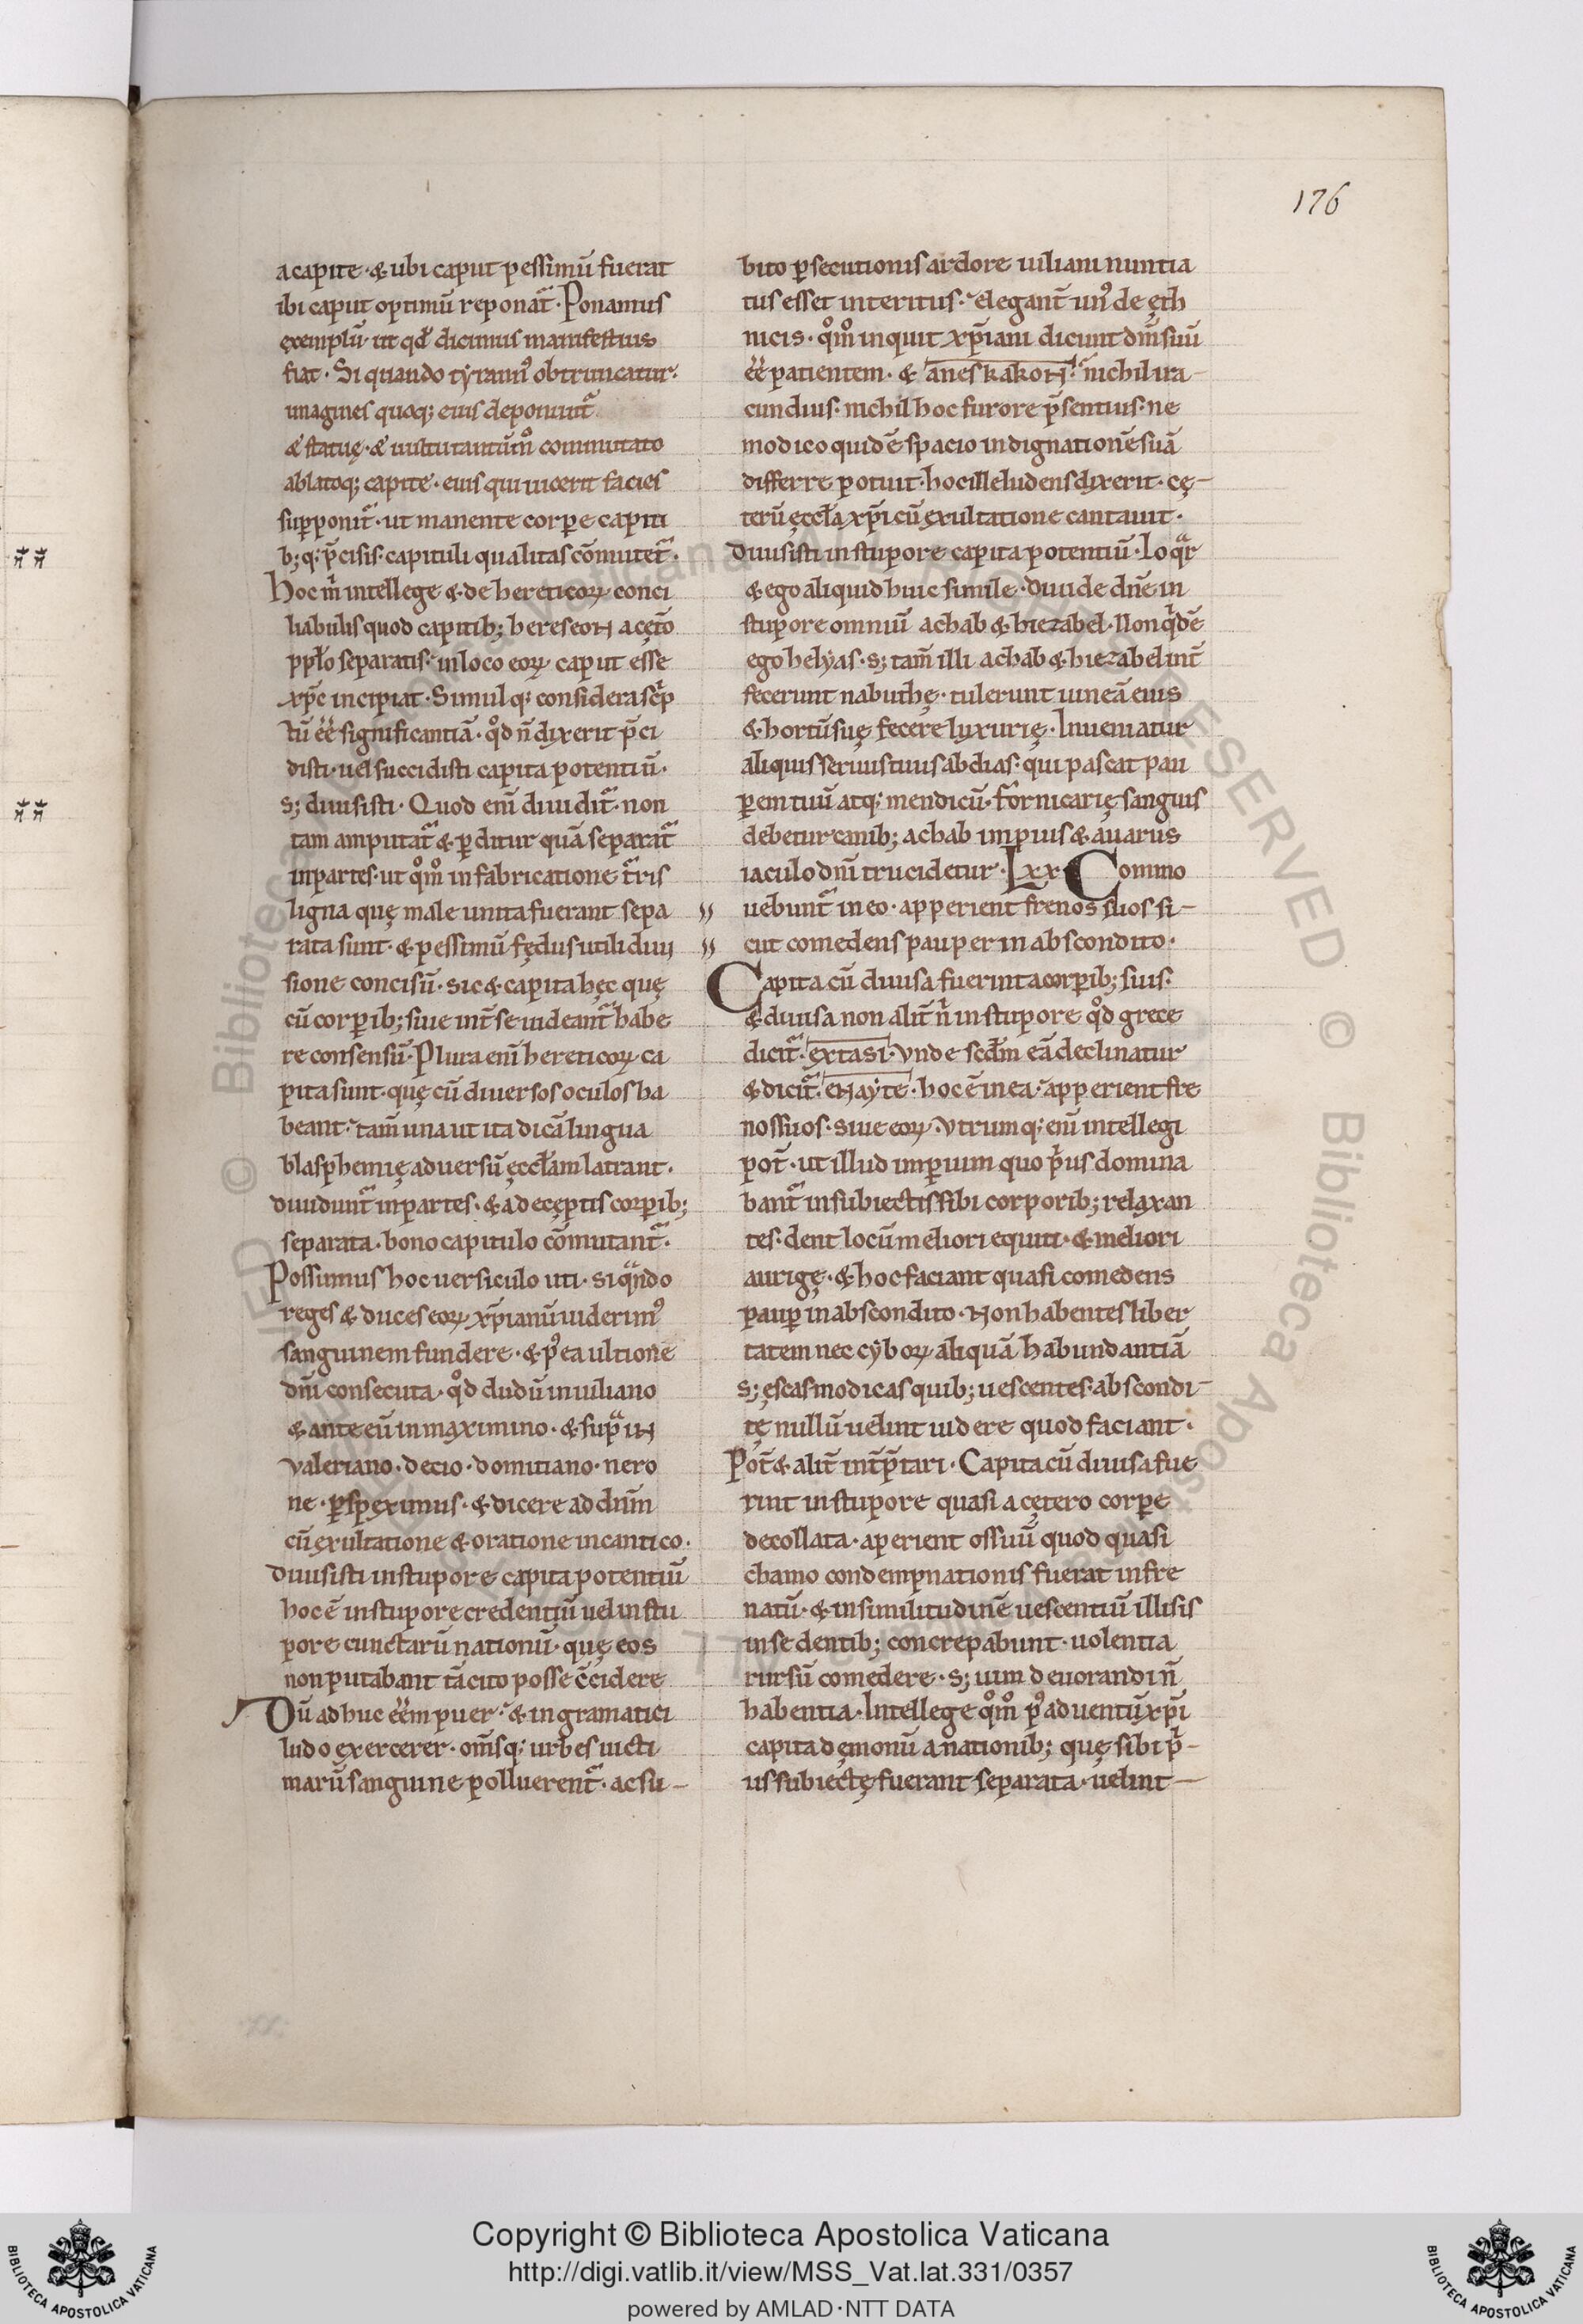 176
a capite · & ubi caput pessimū fuerat
ibi caput optimū reponat᷑ · Ponamus
ęxemplū · ut qđ dicimus manifestius
fiat · Si quando tyrann᷒ obtruncatur ·
imagines quoq; eius deponunt᷑
& statuę · & uultu tantūm̊ commutato
ablatoq; capite · eius qui uicerit facies
supponit᷑ · ut manente corpꝑe capiti
b; q; p̄cisis · capituli qualitas cōmutet᷑ ·
Hoc m̊ intellege & de hereticoꝝ conci
liabulis quod capitib; hereseon a cęto
pplo separatis · in loco eoꝝ caput esse
xp̄c incipiat · Simul q; considera scrip
tū ēē significantiā · qd̊ n̄ dixerit p̄ci
disti · uel succidisti capita potentiū ·
s; diuisisti · Quod enī diuidit᷑ · non
tam amputat᷑ & ꝑditur quā separat᷑
in partes · ut qm̊ in fabricatione t᷑ris
ligna quę male unita fuerant sepa
rata sunt · & pessimū fędus utili diui
sione concisū · sic & capita hęc quę
cū corꝑib; siue int̄ se uideant᷑ habe
re consensū · Plura enī hereticoꝝ ca
pita sunt · quę cū diuersos oculos ha
beant · tam̄ una ut ita dicā lingua
blasphemię aduersū ęccłam latrant ·
diuidunt᷑ in partes · & a deceptis corꝑib;
separata · bono capitulo cōmutant᷑ ·
Possumus hoc uersiculo uti · si qn̄do
reges & duces eoꝝ xp̄ianū uiderim᷒
sanguinem fundere · & p᷒ ea ultione
dn̄i consecuta · qd̊ dudū in iuliano
& ante eū in maximino · & supᵃ in
Valeriano · decio · domitiano · nero
ne · ꝑspeximus · & dicere ad dn̄m
cū exultatione & oratione in cantico ·
Diuisisti in stupore capita potentiū
hoc ē in stupore credentiū uel in stu
pore cunctarū nationū · quę eos
non putabant tā cito posse c̄cidere
Dū adhuc ēēm puer · & in gramatici
ludo ęxercerer · om̄sq; urbes uicti
marū sanguine polluerent᷑ · ac su-
bito ꝑsecutionis ardore iuliani nuntia
tus esset interitus · eleganṫ un᷒ de ęth
nicis · qm̊ inquit xp̄iani dicunt dm̄ suū
ēē patientem · & aneskakon · nichil ira-
cundius · nichil hoc furore p̄sentius · ne
modico quidē spacio indignationē suā
differre potuit · hoc ille ludens dixerit · cę-
terū ęccła xp̄i cū exultatione cantauit ·
Diuisisti in stupore capita potentiū · Loqᵃr
& ego aliquid huic simile · Diuide dn̄e in
stupore omniū achab & hiezabel · Non qⁱdē
ego helyas · s; tam̄ illi achab & hiezabel int̄
fecerunt nabuthę · tulerunt uineā eius
& hortū suę fecere luxurię · Inueniatur
aliquis seruus tuus abdias · qui pascat pau
ꝑem tuū atq; mendicū · fornicarię sanguis
debetur canib; achab impius & auarus
iaculo dn̄i trucidetur · Lxx · Commo
uebunt᷑ in eo · apperient frenos suos si-
cut comedens pauper in abscondito ·
Capita cū diuisa fuerint a corꝑib; suis ·
& diuisa non alit̄ nⁱ in stupore qd̊ grece
dicit᷑ · extasi · Vnde scd̄m eā declinatur
& dicit᷑ · enayte · hoc ē in ea · apperient fre
nos suos · siue eoꝝ · Vtrumq; enī intellegi
pot̄ · ut illud imperium quo pⁱus domina
bant᷑ in subiectis sibi corporib; relaxan
tes · dent locū meliori equiti · & meliori
aurigę · & hoc faciant quasi comedens
pauꝑ in abscondito · Non habentes liber
tatem nec cyboꝝ aliquā habundantiā
s; ęscas modicas quib; uescentes · abscondi-
tę nullū uelint uidere quod faciant ·
Pot̄ & alit̄ int̄p̄tari · Capita cū diuisa fue
rint in stupore quasi a cętero corꝑe
decollata · aperient os suū quod quasi
chamo condempnationis fuerat infre
natū · & in similitudinē uescentiū illisis
in se dentib; concrepabunt · uolentia
rursū comedere · s; uim deuorandi n̄
habentia · Intellege qm̊ p᷒ aduentū xp̄i
capita dęmonū a nationib; quę sibi pⁱ-
us subiectę fuerant separata · uelint-
Copyright © Biblioteca Apostolica Vaticana
http://digi.vatlib.it/view/MSS_Vat.lat.331/0357
powered by AMLAD·NTT DATA
BIBLIOTECA APOSTOLICA VATICANA
BIBLIOTECA APOSTOLICA VATICANA